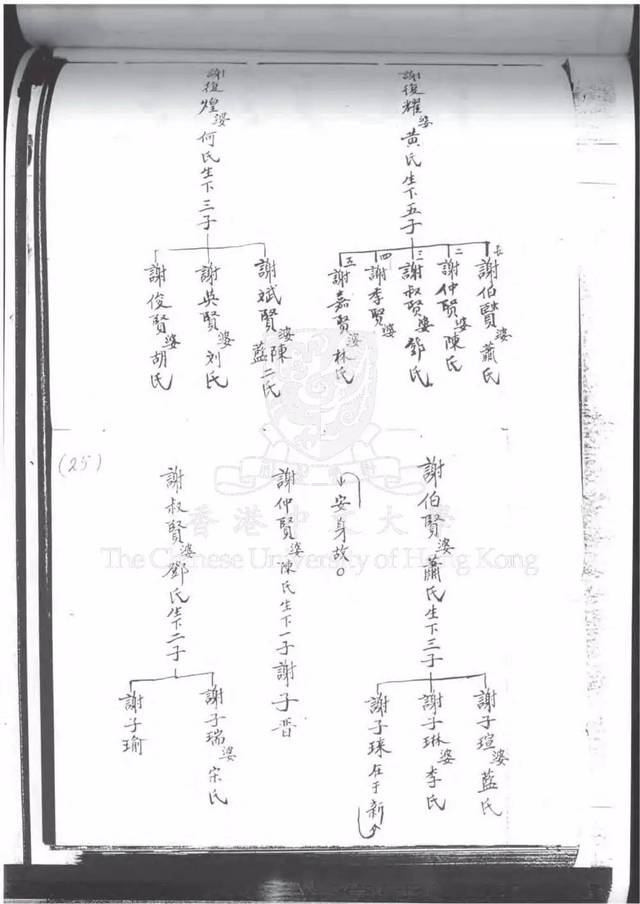 謝復耀婆黃氏生下五子
長謝伯賢婆蕭氏
二謝仲賢婆陳氏
三謝叔賢婆鄧氏
四謝季賢婆
五謝嘉賢婆林氏
謝復煌婆何氏生下三子
謝斌賢婆陳藍二氏
謝英賢婆刘氏
謝俊賢婆胡氏
謝伯賢婆蕭氏生下三子
謝子瑄婆藍氏
謝子琳婆李氏
謝子琜在于新
安身故。
謝仲賢婆陳氏生下一子謝子晋
謝叔賢婆鄧氏生下二子
謝子瑞婆宋氏
謝子瑜
(25)
香港中文大學
The Chinese University of Hong Kong